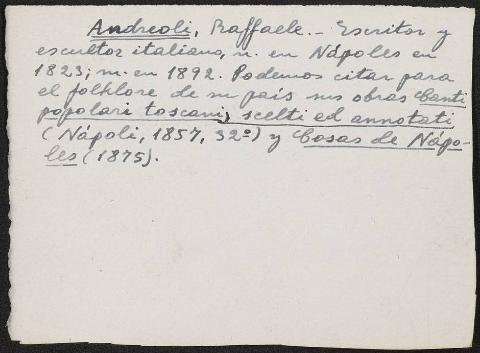 Andreoli, Raffaele. — Escritor y
escultor italiano, n. en Nápoles en
1823; m. en 1892. Podemos citar para
el folklore de su país sus obras Canti
popolari toscani, scelti ed annotati
(Nápoli, 1857, 32º) y Cosas de Nápo-
les (1875).